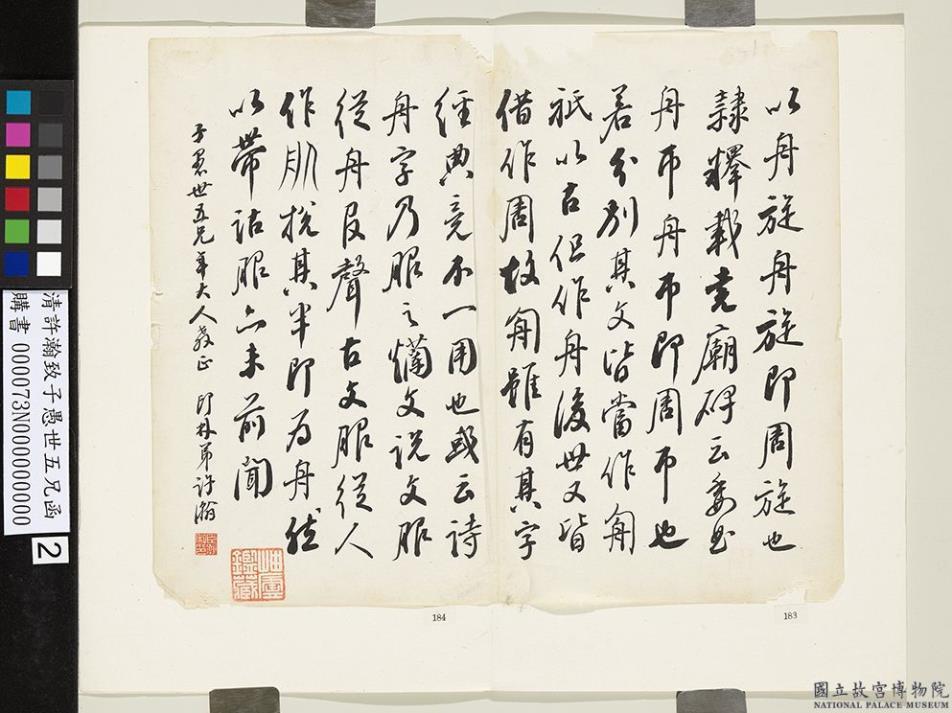 以舟旋舟旋即周旋也
隸釋載堯廟碑云委曲
舟帀舟帀即周帀也
若分別其文皆當作匊
祇以古但作舟後世又皆
借作周故匊雖有其字
經典竟不一用也或云詩
舟字乃服之爛文說文服
從舟𠬝聲古文服從人
作肌挩其半即為舟然
以帶詁服亦未前聞
子愚世五兄年大人教正 印林弟許瀚
岫雲鑑藏
清許瀚致子愚世五兄函
購書 000073N000000000
2
184
183
國立故宮博物院
NATIONAL PALACE MUSEUM